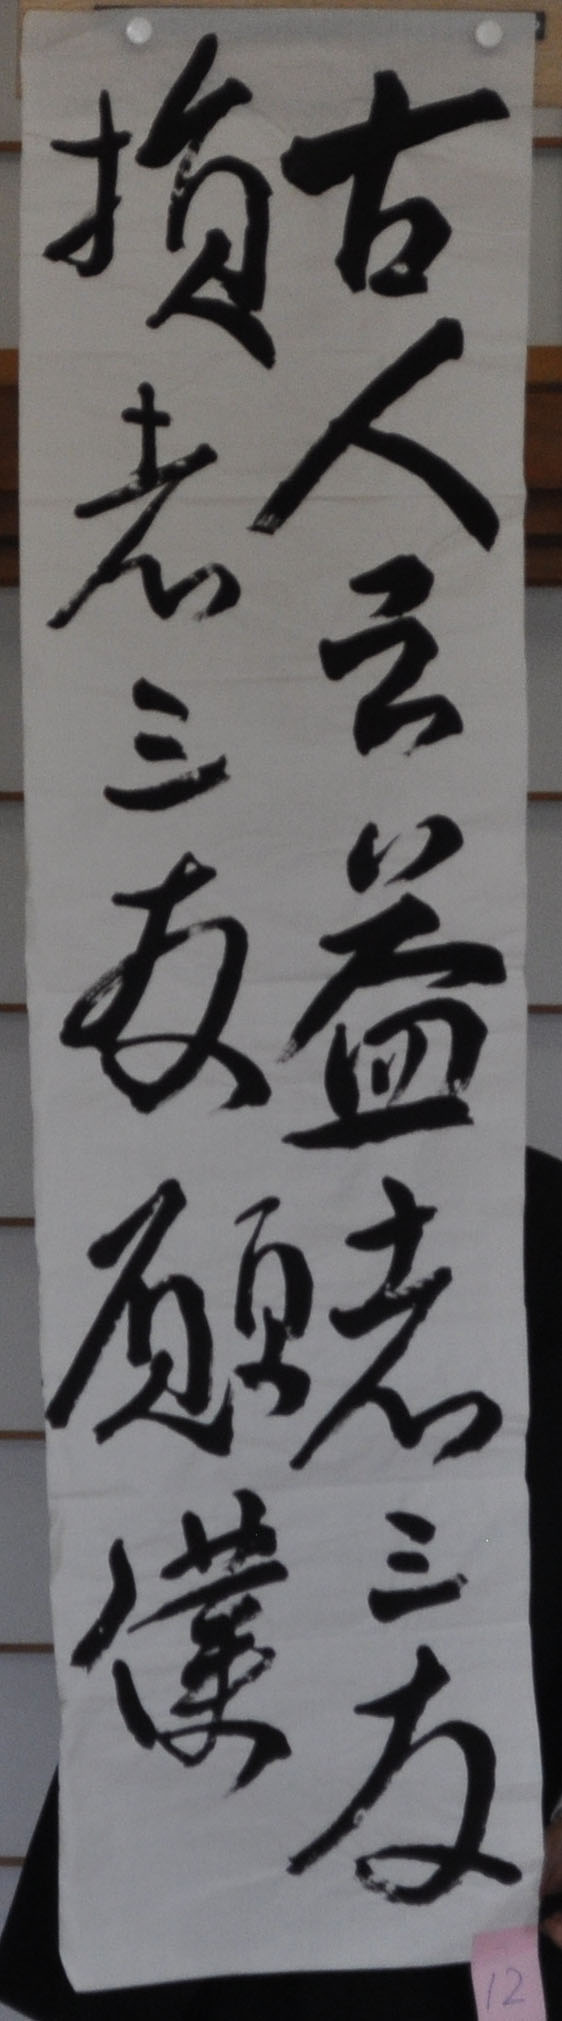 古人云益者三友
損者三友願僕
12